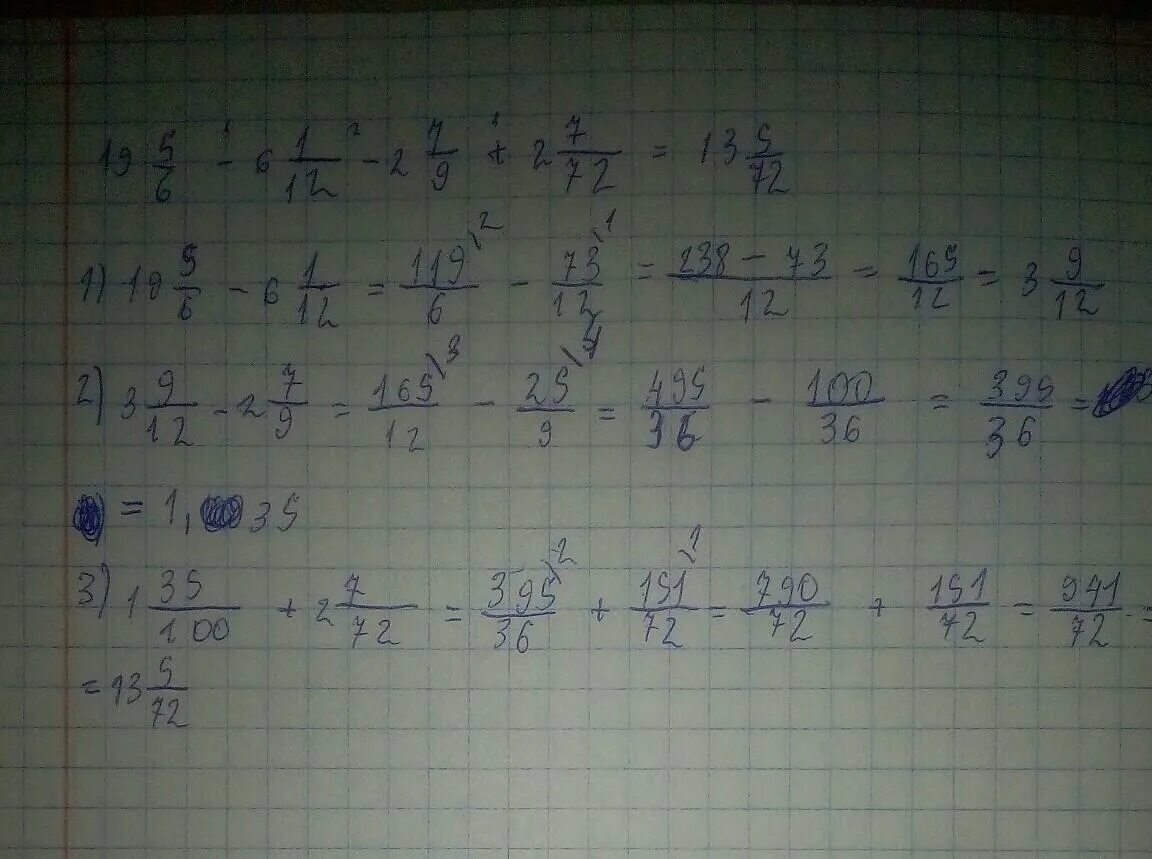 19 5/6 - 6 1/12 - 2 7/9 + 2 7/72 = 13 5/72
1) 19 5/6 - 6 1/12 = 119\2/6 - 73\1/12 = 238 - 73/12 = 165/12 = 3 9/12
2) 3 9/12 - 2 7/9 = 165\3/12 - 25\4/9 = 495/36 - 100/36 = 395/36 =
= 1, 35
3) 1 35/100 + 2 7/72 = 395\2/36 + 151\1/72 = 790/72 + 151/72 = 941/72 =
= 13 5/72